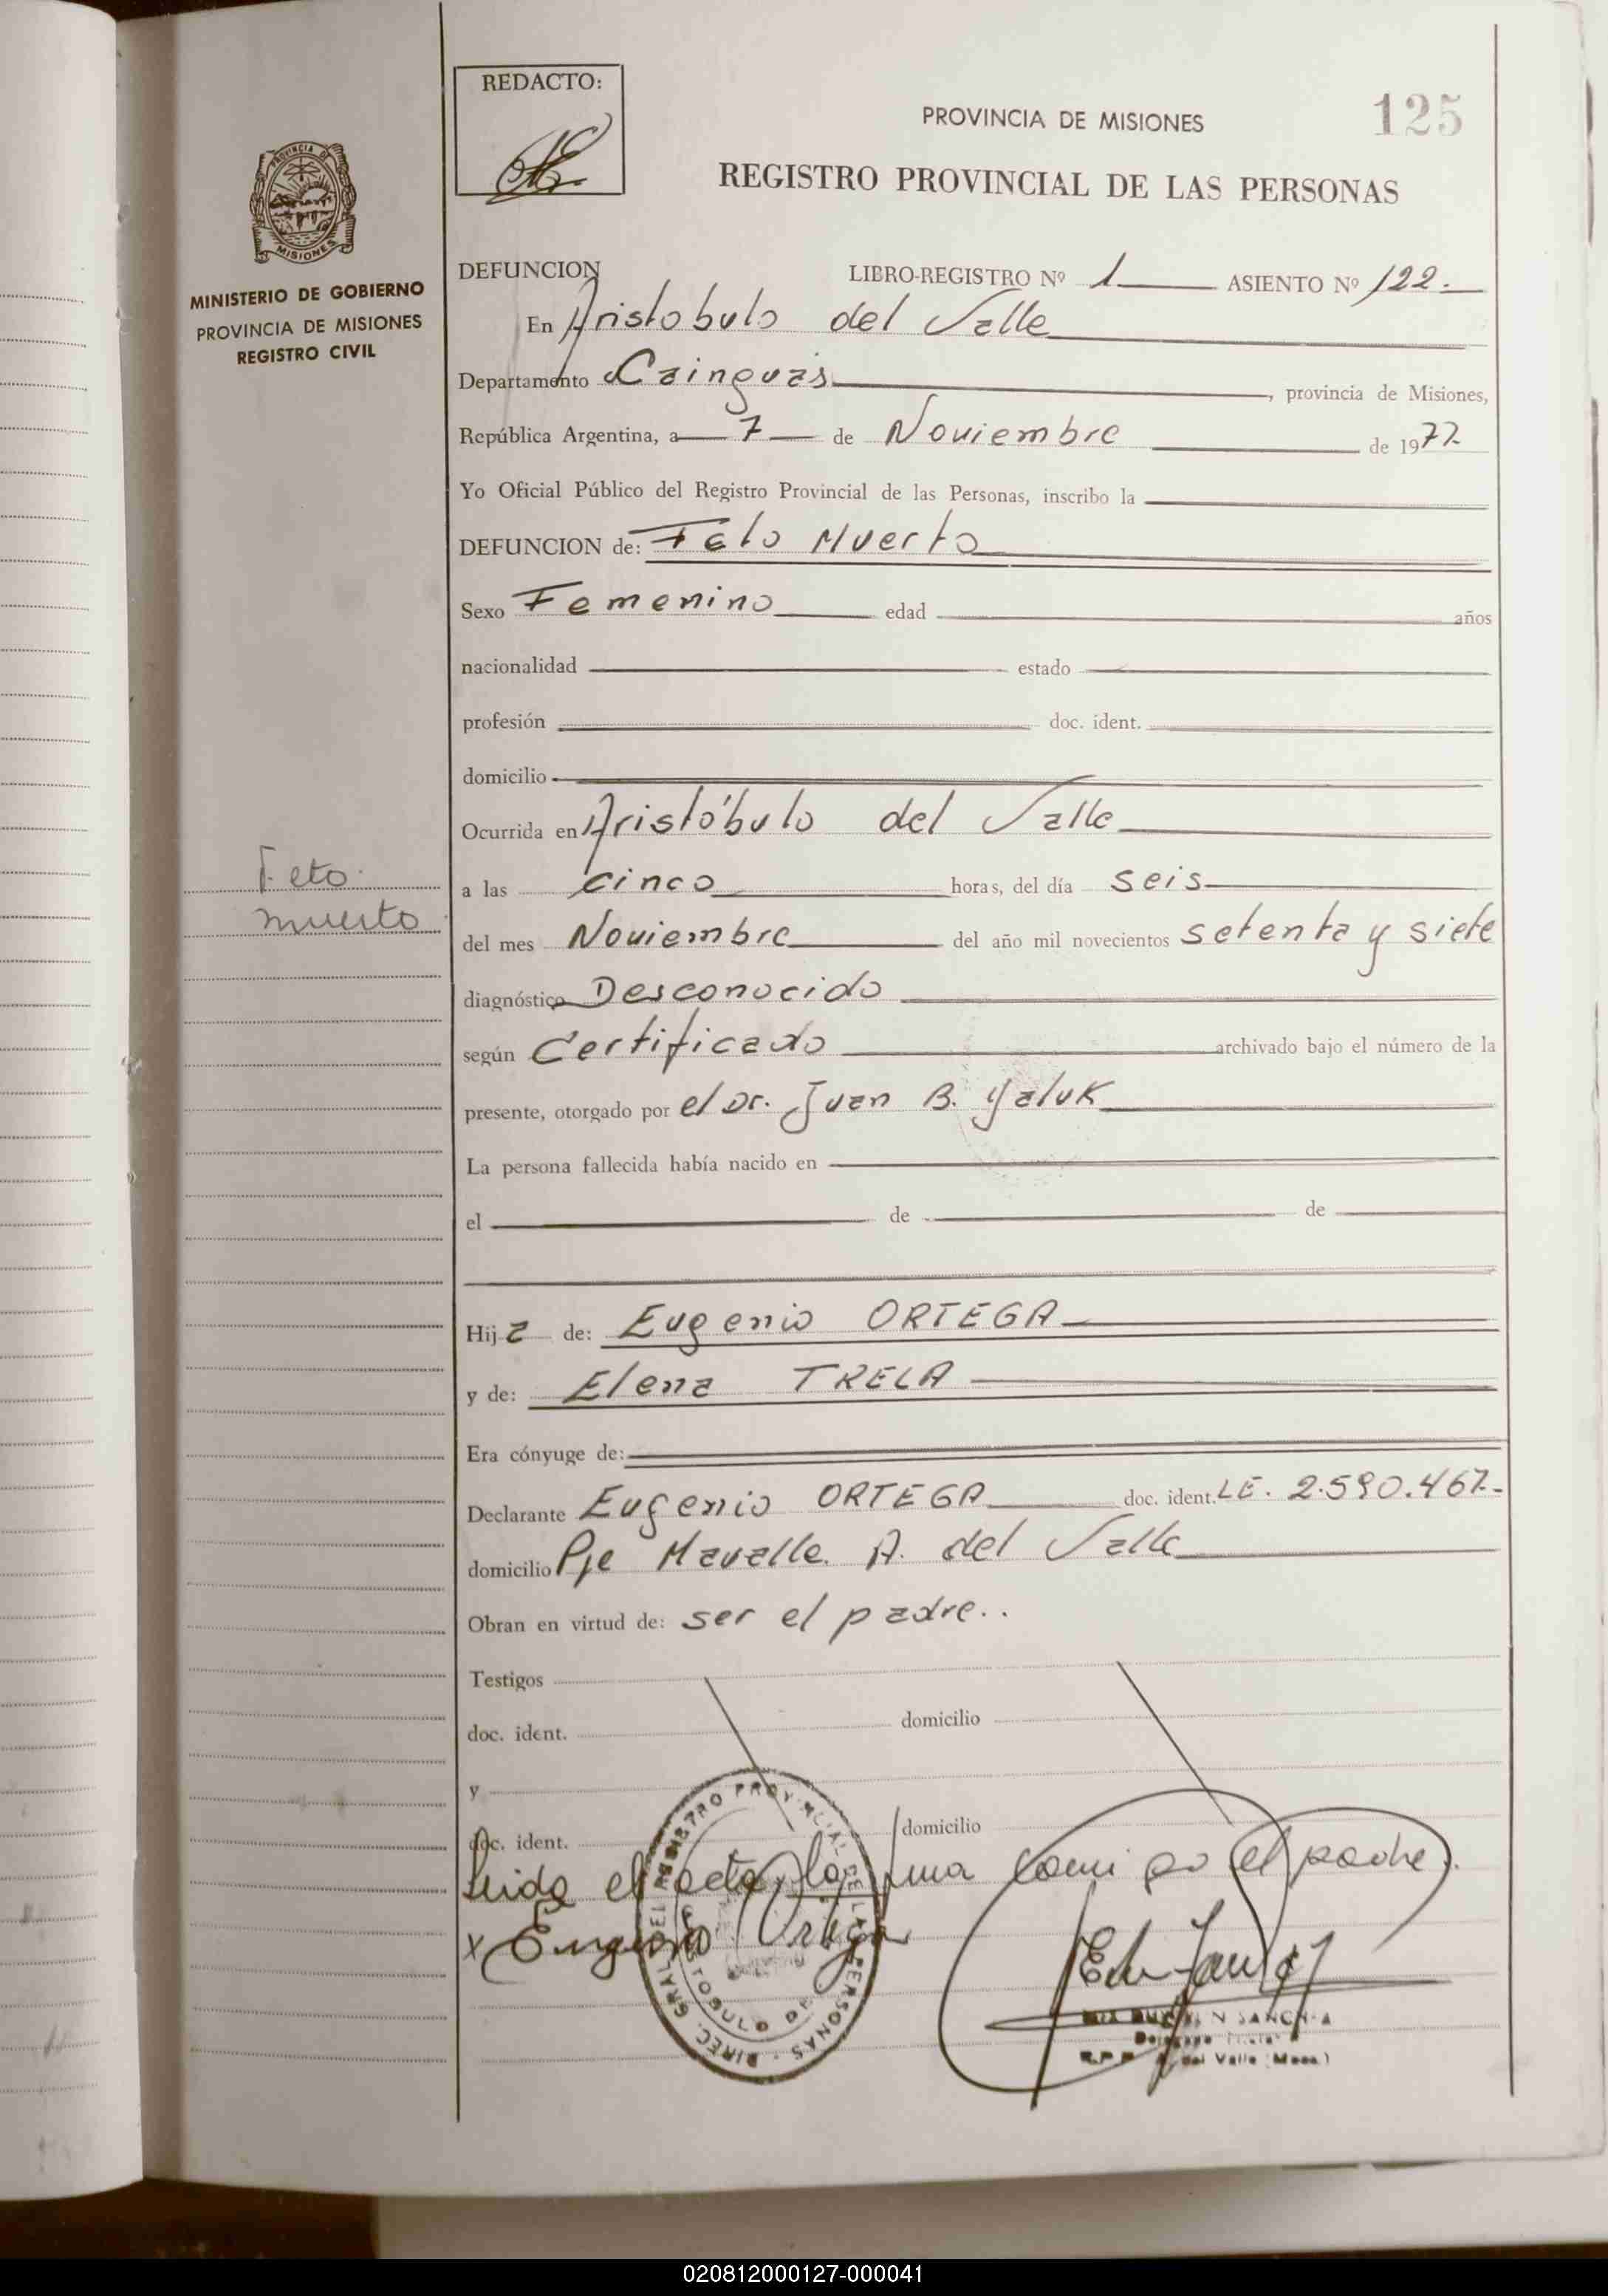 REDACTO:
PROVINCIA DE MISIONES
125
REGISTRO PROVINCIAL DE LAS PERSONAS
PROVINCIA D
MISIONES
MINISTERIO DE GOBIERNO
PROVINCIA DE MISIONES
REGISTRO CIVIL
DEFUNCION LIBRO-REGISTRO Nº 1 ASIENTO Nº 122.
En Aristobulo del Valle
Departamento Cainguás, provincia de Misiones,
República Argentina, a 7 de Noviembre de 1977.
Yo Oficial Público del Registro Provincial de las Personas, inscribo la
DEFUNCION de: Feto Muerto
Sexo Femenino edad años
nacionalidad estado
profesión doc. ident.
domicilio
Ocurrida en Aristóbulo del Valle
Feto
muerto
a las cinco horas, del día seis
del mes Noviembre del año mil novecientos setenta y siete
diagnóstico Desconocido
según Certificado archivado bajo el número de la
presente, otorgado por el Dr. Juan B. Yaluk
La persona fallecida había nacido en
el de de
Hija de: Eugenio ORTEGA
y de: Elena TRELA
Era cónyuge de:
Declarante Eugenio ORTEGA doc. ident. LE. 2.590.467.-
domicilio Pje Mavalle. A. del Valle
Obran en virtud de: ser el padre..
Testigos
doc. ident. domicilio
y
doc. ident. domicilio
Leida el acta, la firma conmigo el padre.
x Eugenio Ortega
DIREC. GRAL. DEL REGISTRO PROVINCIAL DE LAS PERSONAS
del Valle
020812000127-000041